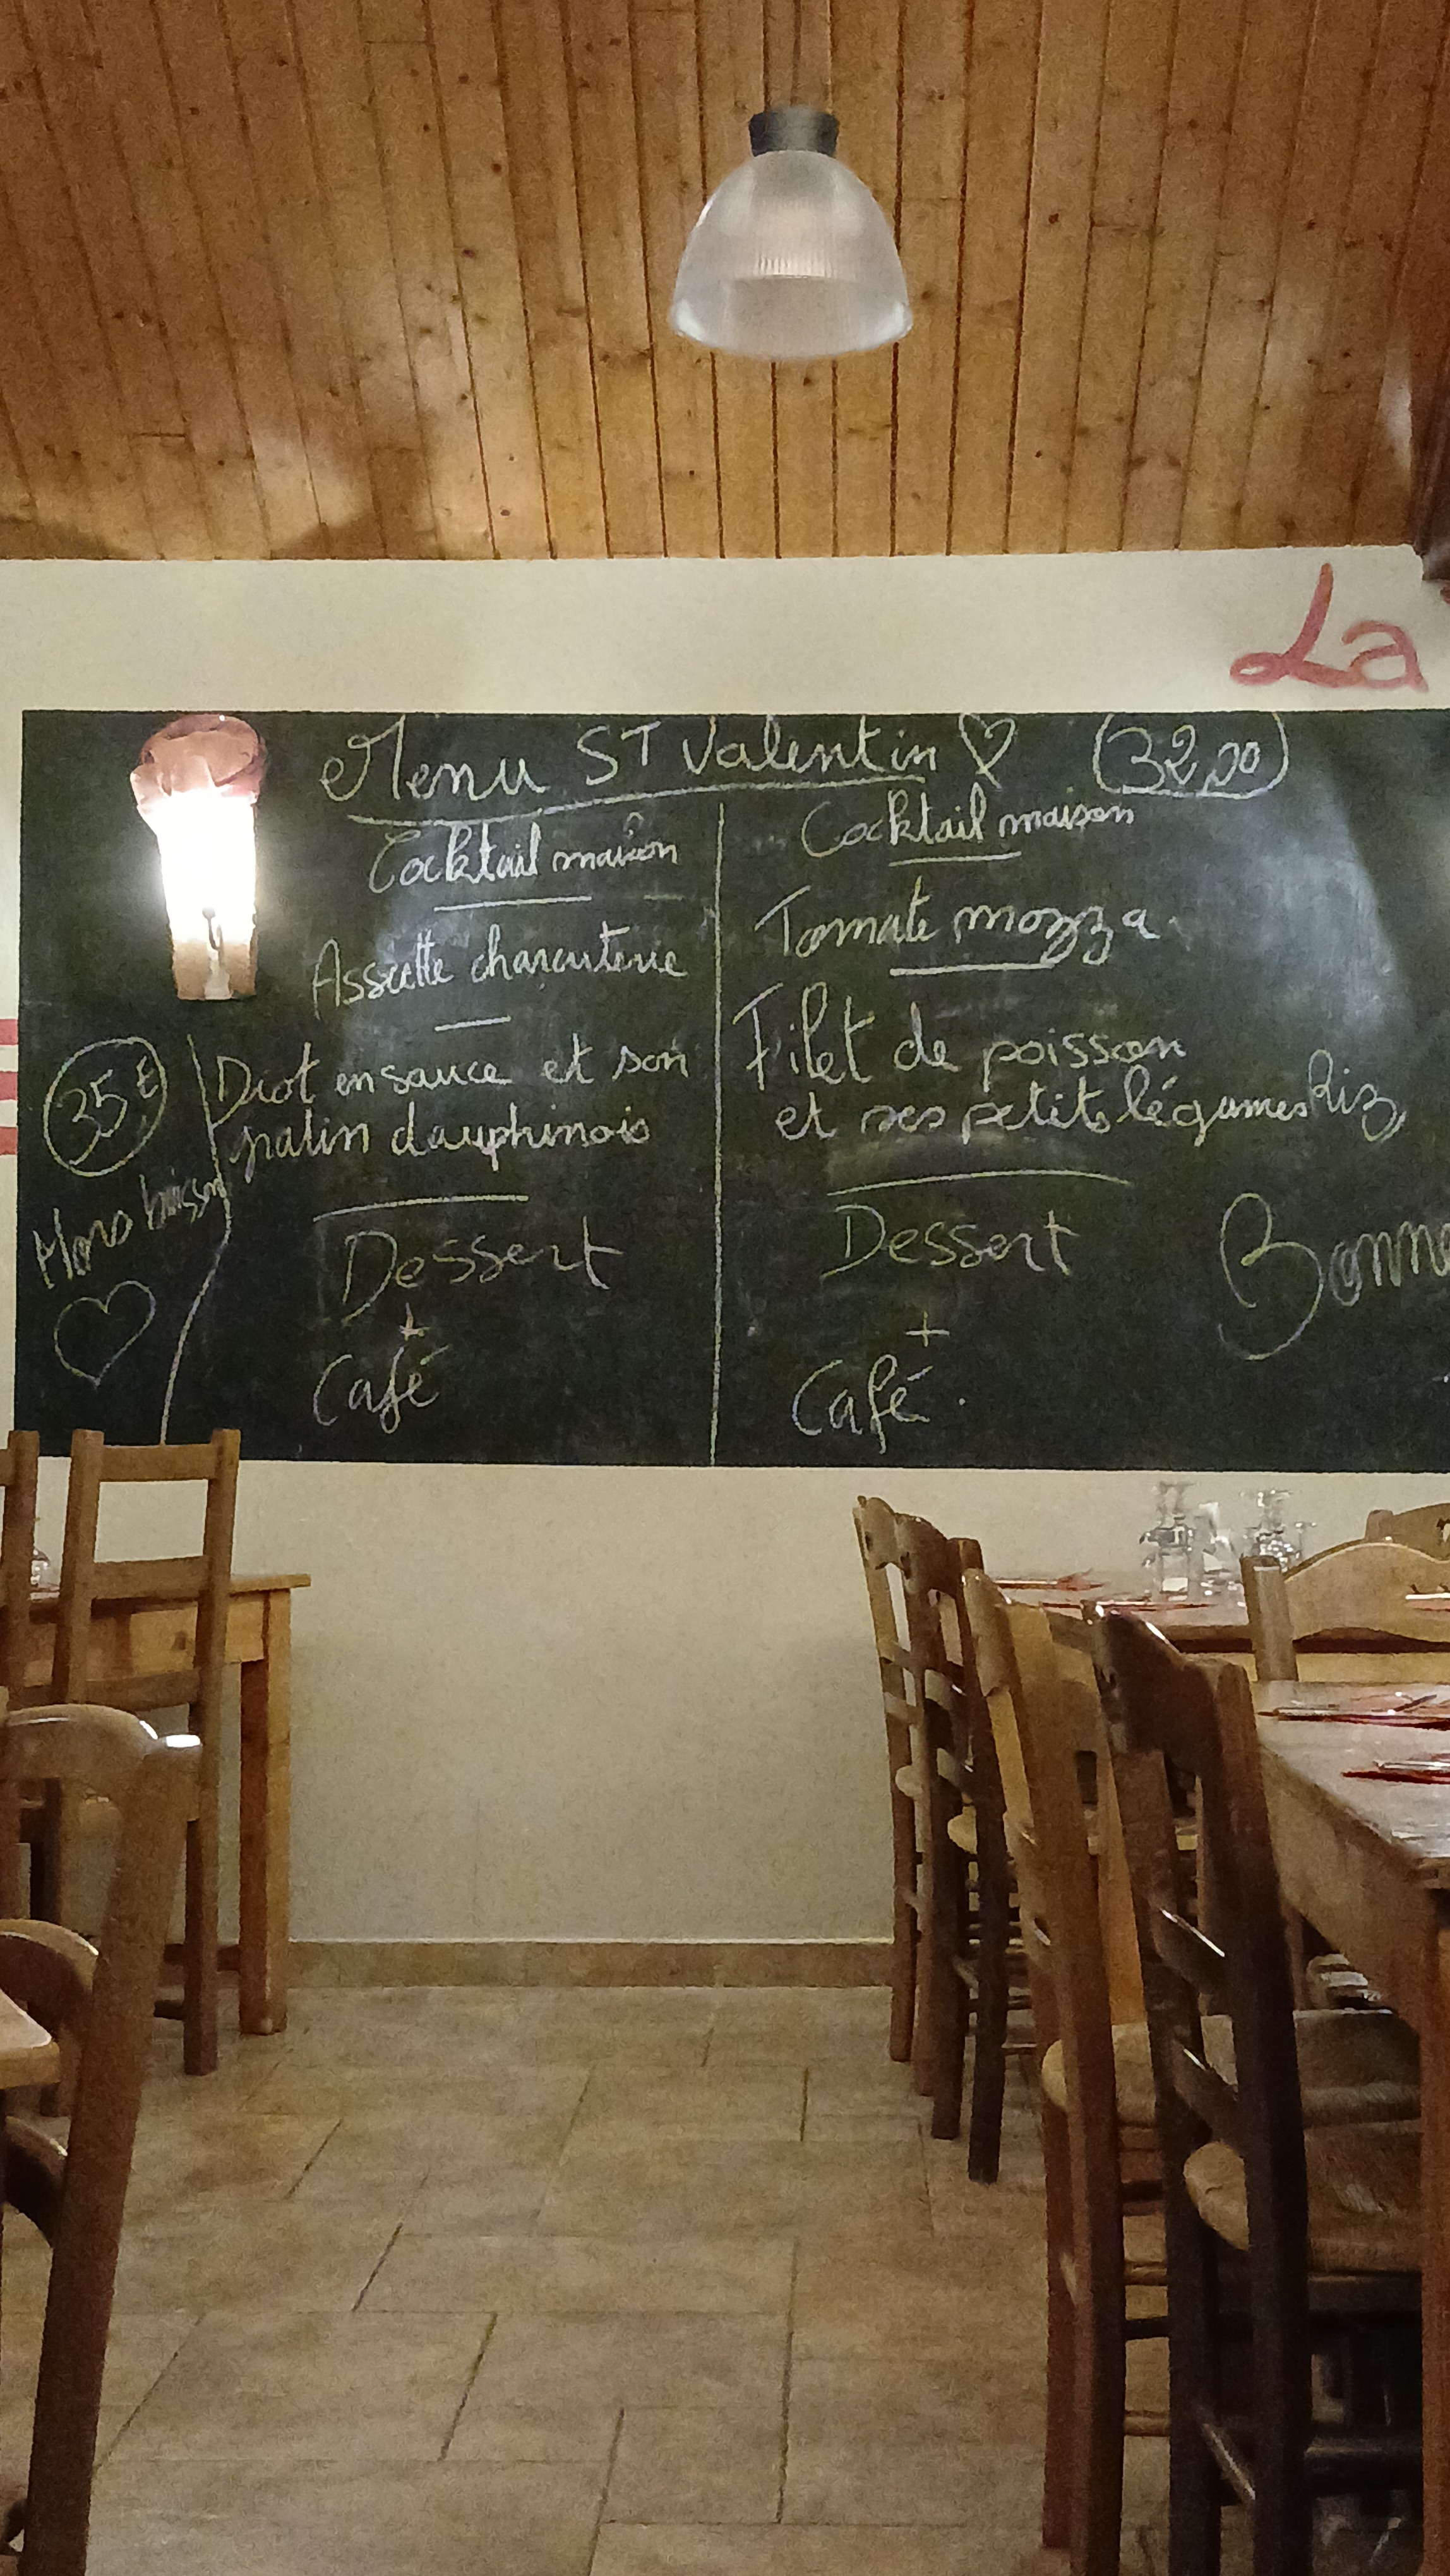 La
Menu ST Valentin ♡ (32,00)
Cocktail maison
Assiette charcuterie
35€
Hors boisson
Diot en sauce et son
gratin dauphinois
Dessert
+
Café
Cocktail maison
Tomate mozza
Filet de poisson
et ses petits légumes Riz
Dessert
+
Café.
Bonne